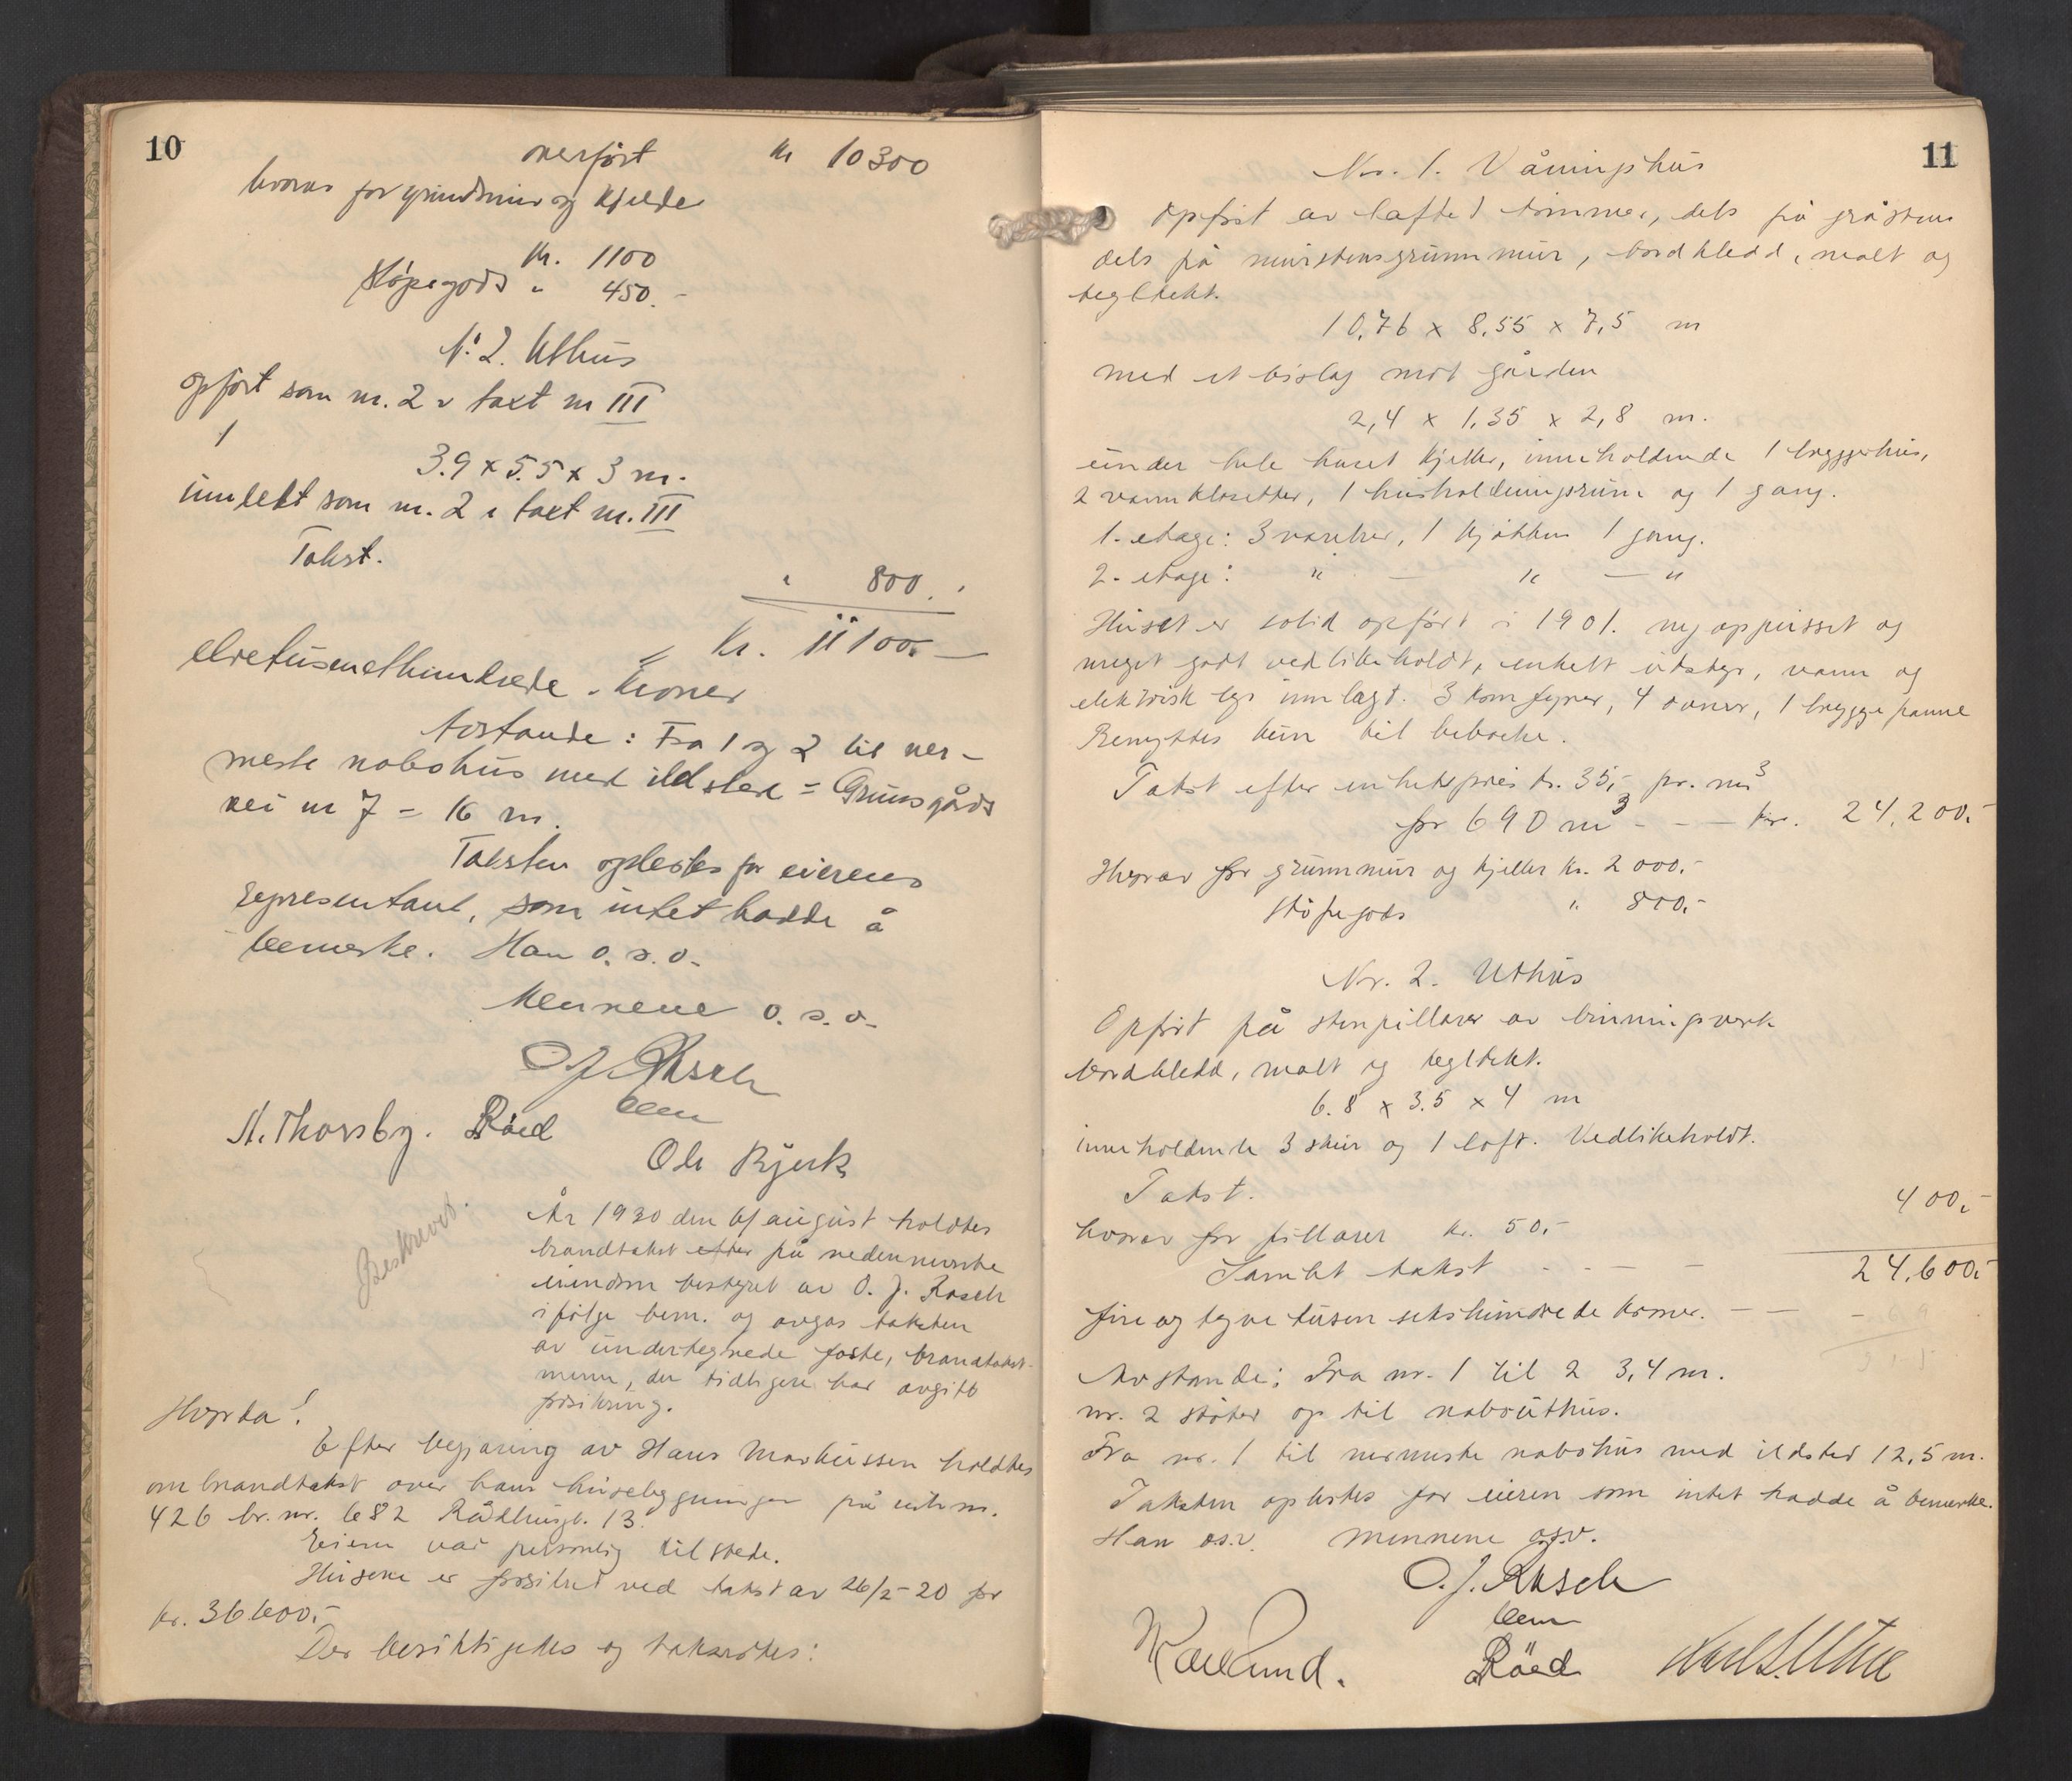 10
overført kr 10300
hvorav for grundmur og kjelder
kr. 1100
Støpegods " 450.-
N: 2. Uthus
opført som nr. 2 i taxt nr III
3.9 x 5.5 x 3 m.
innredt som nr. 2 i taxt nr. III
Takst.
" 800.-
Kr. 11100.-
elvetusenethundrede - kroner
Avstande: Fra 1 og 2 til ner-
meste nabohus med ildsted = Grunsgårds
vei nr 7 = 16 m.
Taksten oplestes for eierens
representant, som intet hadde å
bemerke. Han o. s. v.
Mennene o. s. v.
O. J. Rasch
bem
A. Thorsby. Röed
Ole Bjerk
Beskrevet.
År 1930 den 6/ august holdtes
brandtakst efter på nedennevnte
eiendom bestyret av O. J. Rasch
ifølge bem. og avgas taksten
av undertegnede faste, brandtakst-
menn, der tidligere har avgitt
forsikring.
Hvorda!
Efter begjæring av Hans Markussen holdtes
ombrandtakst over hans husebygninger på
426 br. nr. 682 Rådhusgt. 13.
Eieren var personlig tilstede.
Husene er forsikret ved takst av 26/2-20 for
kr. 36600.-
Der besiktigedes og taksertes:
11
Nr. 1. Våningshus
Opført av laftet tømmer, dels på gråstens
dels på murstensgrunnmur, bordkledd, malt og
tegltekt.
10,76 x 8,55 x 7,5 m
med et bislag mot gården
2,4 x 1,35 x 2,8 m.
under hele huset kjeller, inneholdende 1 bryggerhus,
2 vannklosetter, 1 husholdningsrum og 1 gang.
1. etage: 3 værelser, 1 kjøkken 1 gang.
2. etage: " — " — "
Huset er solid opført i 1901. nyoppusset og
meget godt vedlikeholdt, enkelt utstyr, vann og
elektrisk lys innlagt. 3 komfyrer, 4 ovner, 1 bryggepanne
Benyttes kun til beboelse.
Takst efter enhetspris kr. 35,- pr. m3
for 690 m3 - - — kr. 24.200.-
Hvorav for grunnmur og kjeller kr. 2000.-
støpegods " 800.-
Nr. 2. Uthus
Opført på stenpillarer av binningsverk
bordkledd, malt og tegltekt.
6.8 x 3.5 x 4 m
inneholdende 3 skur og 1 loft. Vedlikeholdt.
Takst. 400.-
hvorav for pillarer kr. 50.-
Samlet takst - - — — 24.600.-
fire og tyve tusen sekshundrede kroner. — —
Avstande: Fra nr. 1 til 2 3,4 m.
nr. 2 støter op til nabouthus.
Fra nr. 1 til nermeste nabohus med ildsted 12,5 m.
Taksten oplestes for eieren som intet hadde å bemerke.
Han osv. Mennene osv.
O. J. Rasch
bem
Röed